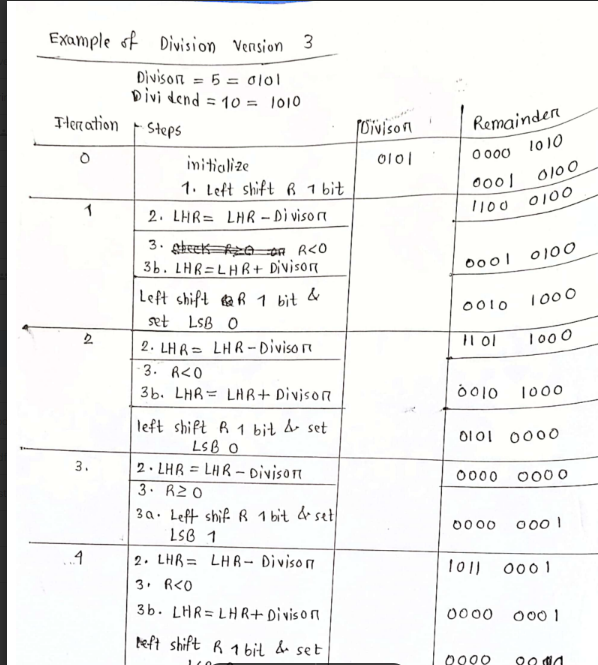 Example of Division Version 3
Divisor = 5 = 0101
Dividend = 10 = 1010
Iteration Steps Divisor Remainder
0 initialize 0101 0000 1010
1. Left shift R 1 bit 0001 0100
1 2. LHR = LHR - Divisor 1100 0100
3. R<0
3b. LHR = LHR + Divisor 0001 0100
Left shift R 1 bit & 0010 1000
set LSB 0
2 2. LHR = LHR - Divisor 1101 1000
3. R<0
3b. LHR = LHR + Divisor 0010 1000
left shift R 1 bit & set 0101 0000
LSB 0
3. 2. LHR = LHR - Divisor 0000 0000
3. R≥0
3a. Left shif R 1 bit & set 0000 0001
LSB 1
4 2. LHR = LHR - Divisor 1011 0001
3. R<0
3b. LHR = LHR + Divisor 0000 0001
left shift R 1 bit & set
0000